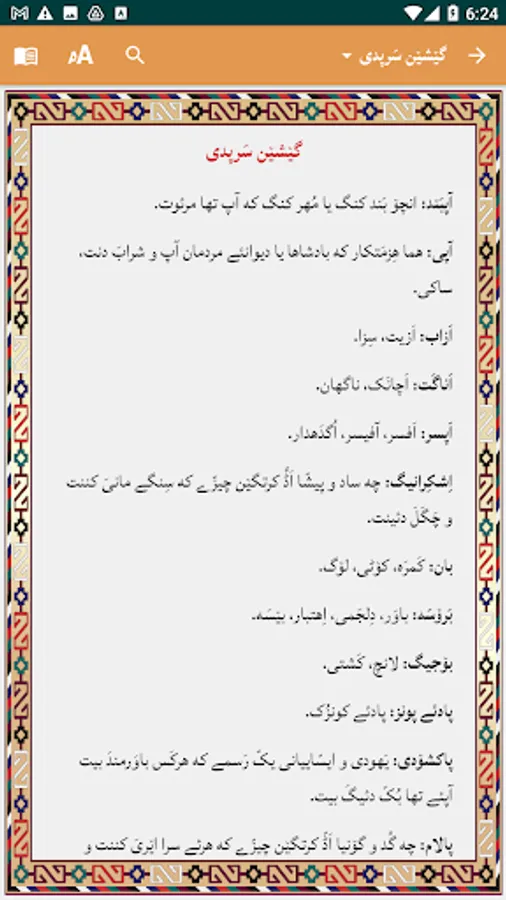 6:24
گێشێن سَرپِدی
گێشێن سَرپِدی
آپبَند: انچۆ بَند کنگ یا مُهر کنگ که آپ تها مرئوت.
آپی: هما هِزمَتکار که بادشاها یا دیوانئے مردمان آپ و شرابَ دنت،
ساکی.
آزاب: اَزیت، سِزا.
اَناگَت: اَچانَک، ناگهان.
اَپسر: اَفسر، آفیسر، اُگدَهدار.
اِشکِرانیگ: چه ساد و پیشّا اَڈّ کرتگێن چیزّے که سِنگے مانیَ کننت
و چَگّلَ دئینت.
بان: کَمرَه، کۆٹی، لۆگ.
بَرۆسَه: باوَر، دِلجَمی، اِهتبار، بیْسَه.
بۆجیگ: لانچ، کَشتی.
پادئے پونز: پادئے کونزُک.
پاکشۆدی: یَهودی و ایسّاییانی یکّ رَسمے که هرکَس باوَرمندَ بیت
آپئے تها بُکّ دئیگَ بیت.
پالام: چه گُد و گۆنیا اَڈّ کرتگێن چیزّے که هرئے سرا ایْریَ کننت و